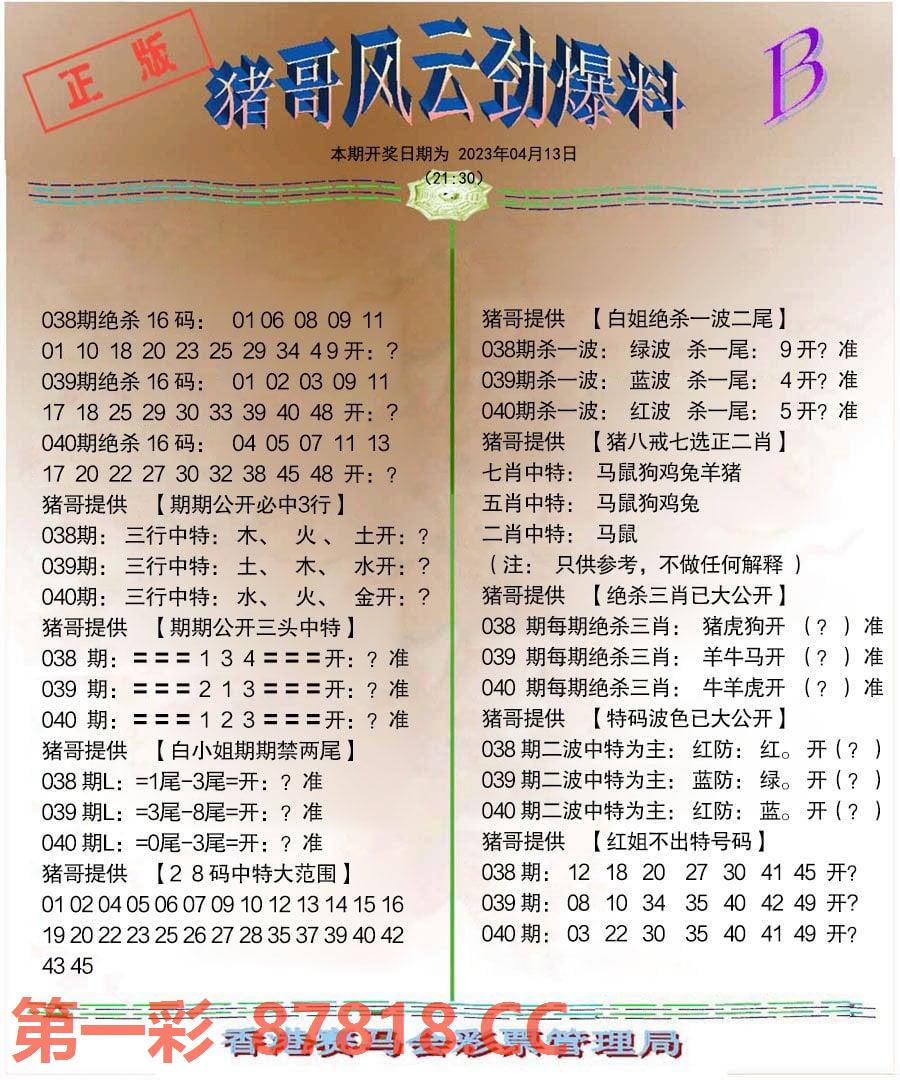 正版
猪哥风云劲爆料
B
本期开奖日期为 2023年04月13日
(21:30)
038期绝杀 16 码： 01 06 08 09 11
01 10 18 20 23 25 29 34 4 9 开：?
039期绝杀 16 码： 01 02 03 09 11
17 18 25 29 30 33 39 40 48 开：?
040期绝杀 16 码： 04 05 07 11 13
17 20 22 27 30 32 38 45 48 开：?
猪哥提供 【期期公开必中3行】
038期：三行中特：木、 火 、 土开：?
039期：三行中特：土、 木、 水开：?
040期：三行中特：水、 火、 金开：?
猪哥提供 【期期公开三头中特】
038 期：=== 1 3 4 ===开：? 准
039 期：=== 2 1 3 ===开：? 准
040 期：=== 1 2 3 ===开：? 准
猪哥提供 【白小姐期期禁两尾】
038 期L：=1尾-3尾=开：? 准
039 期L：=3尾-8尾=开：? 准
040 期L：=0尾-3尾=开：? 准
猪哥提供 【2 8 码中特大范围】
01 02 04 05 06 07 09 10 12 13 14 15 16
19 20 22 23 25 26 27 28 35 37 39 40 42
43 45
猪哥提供 【白姐绝杀一波二尾】
038期杀一波： 绿波 杀一尾： 9 开? 准
039期杀一波： 蓝波 杀一尾： 4 开? 准
040期杀一波： 红波 杀一尾： 5 开? 准
猪哥提供 【猪八戒七选正二肖】
七肖中特： 马鼠狗鸡兔羊猪
五肖中特： 马鼠狗鸡兔
二肖中特： 马鼠
（注： 只供参考，不做任何解释 ）
猪哥提供 【绝杀三肖已大公开】
038 期每期绝杀三肖： 猪虎狗开 （? ）准
039 期每期绝杀三肖： 羊牛马开 （? ）准
040 期每期绝杀三肖： 牛羊虎开 （? ）准
猪哥提供 【特码波色已大公开】
038 期二波中特为主： 红防： 红。 开（? ）
039 期二波中特为主： 蓝防： 绿。 开（? ）
040 期二波中特为主： 红防： 蓝。 开（? ）
猪哥提供 【红姐不出特号码】
038 期： 12 18 20 27 30 41 45 开?
039 期： 08 10 34 35 40 42 49 开?
040 期： 03 22 30 35 40 41 49 开?
第一彩 87818.CC
香港赛马会彩票管理局